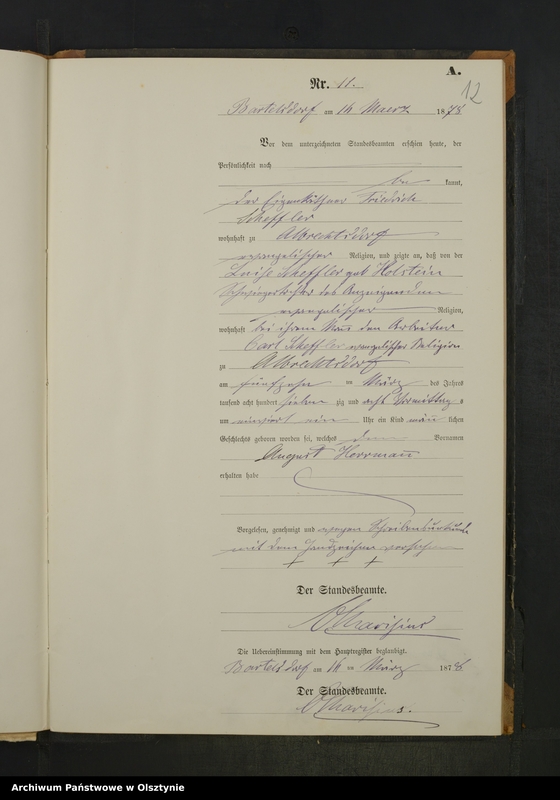 A.
12
Nr. 11.
Bartelsdorf am 16 Maerz 1878
Vor dem unterzeichneten Standesbeamten erschien heute, der
Persönlichkeit nach
be kannt,
der Eigenkäthner Friedrich
Scheffler
wohnhaft zu Albrechtsdorf
evangelischer Religion, und zeigte an, daß von der
Luise Scheffler geb Holstein
Schwiegertochter des Anzeigenden
evangelischer Religion,
wohnhaft bei ihrem Mann den Arbeiter
Carl Scheffler evangelischer Religion
zu Albrechtsdorf
am fünfzehn ten März des Jahres
tausend acht hundert sieben zig und acht Vormittag s
um ein Uhr ein Kind männ lichen
Geschlechts geboren worden sei, welches den Vornamen
August Herrmann
erhalten habe
Vorgelesen, genehmigt und wegen Schreibensunkunde
mit dem Handzeichen versehen
+ + +
Der Standesbeamte.
Die Uebereinstimmung mit dem Hauptregister beglaubigt.
Bartelsdorf am 16 ten März 1878
Der Standesbeamte.
Archiwum Państwowe w Olsztynie